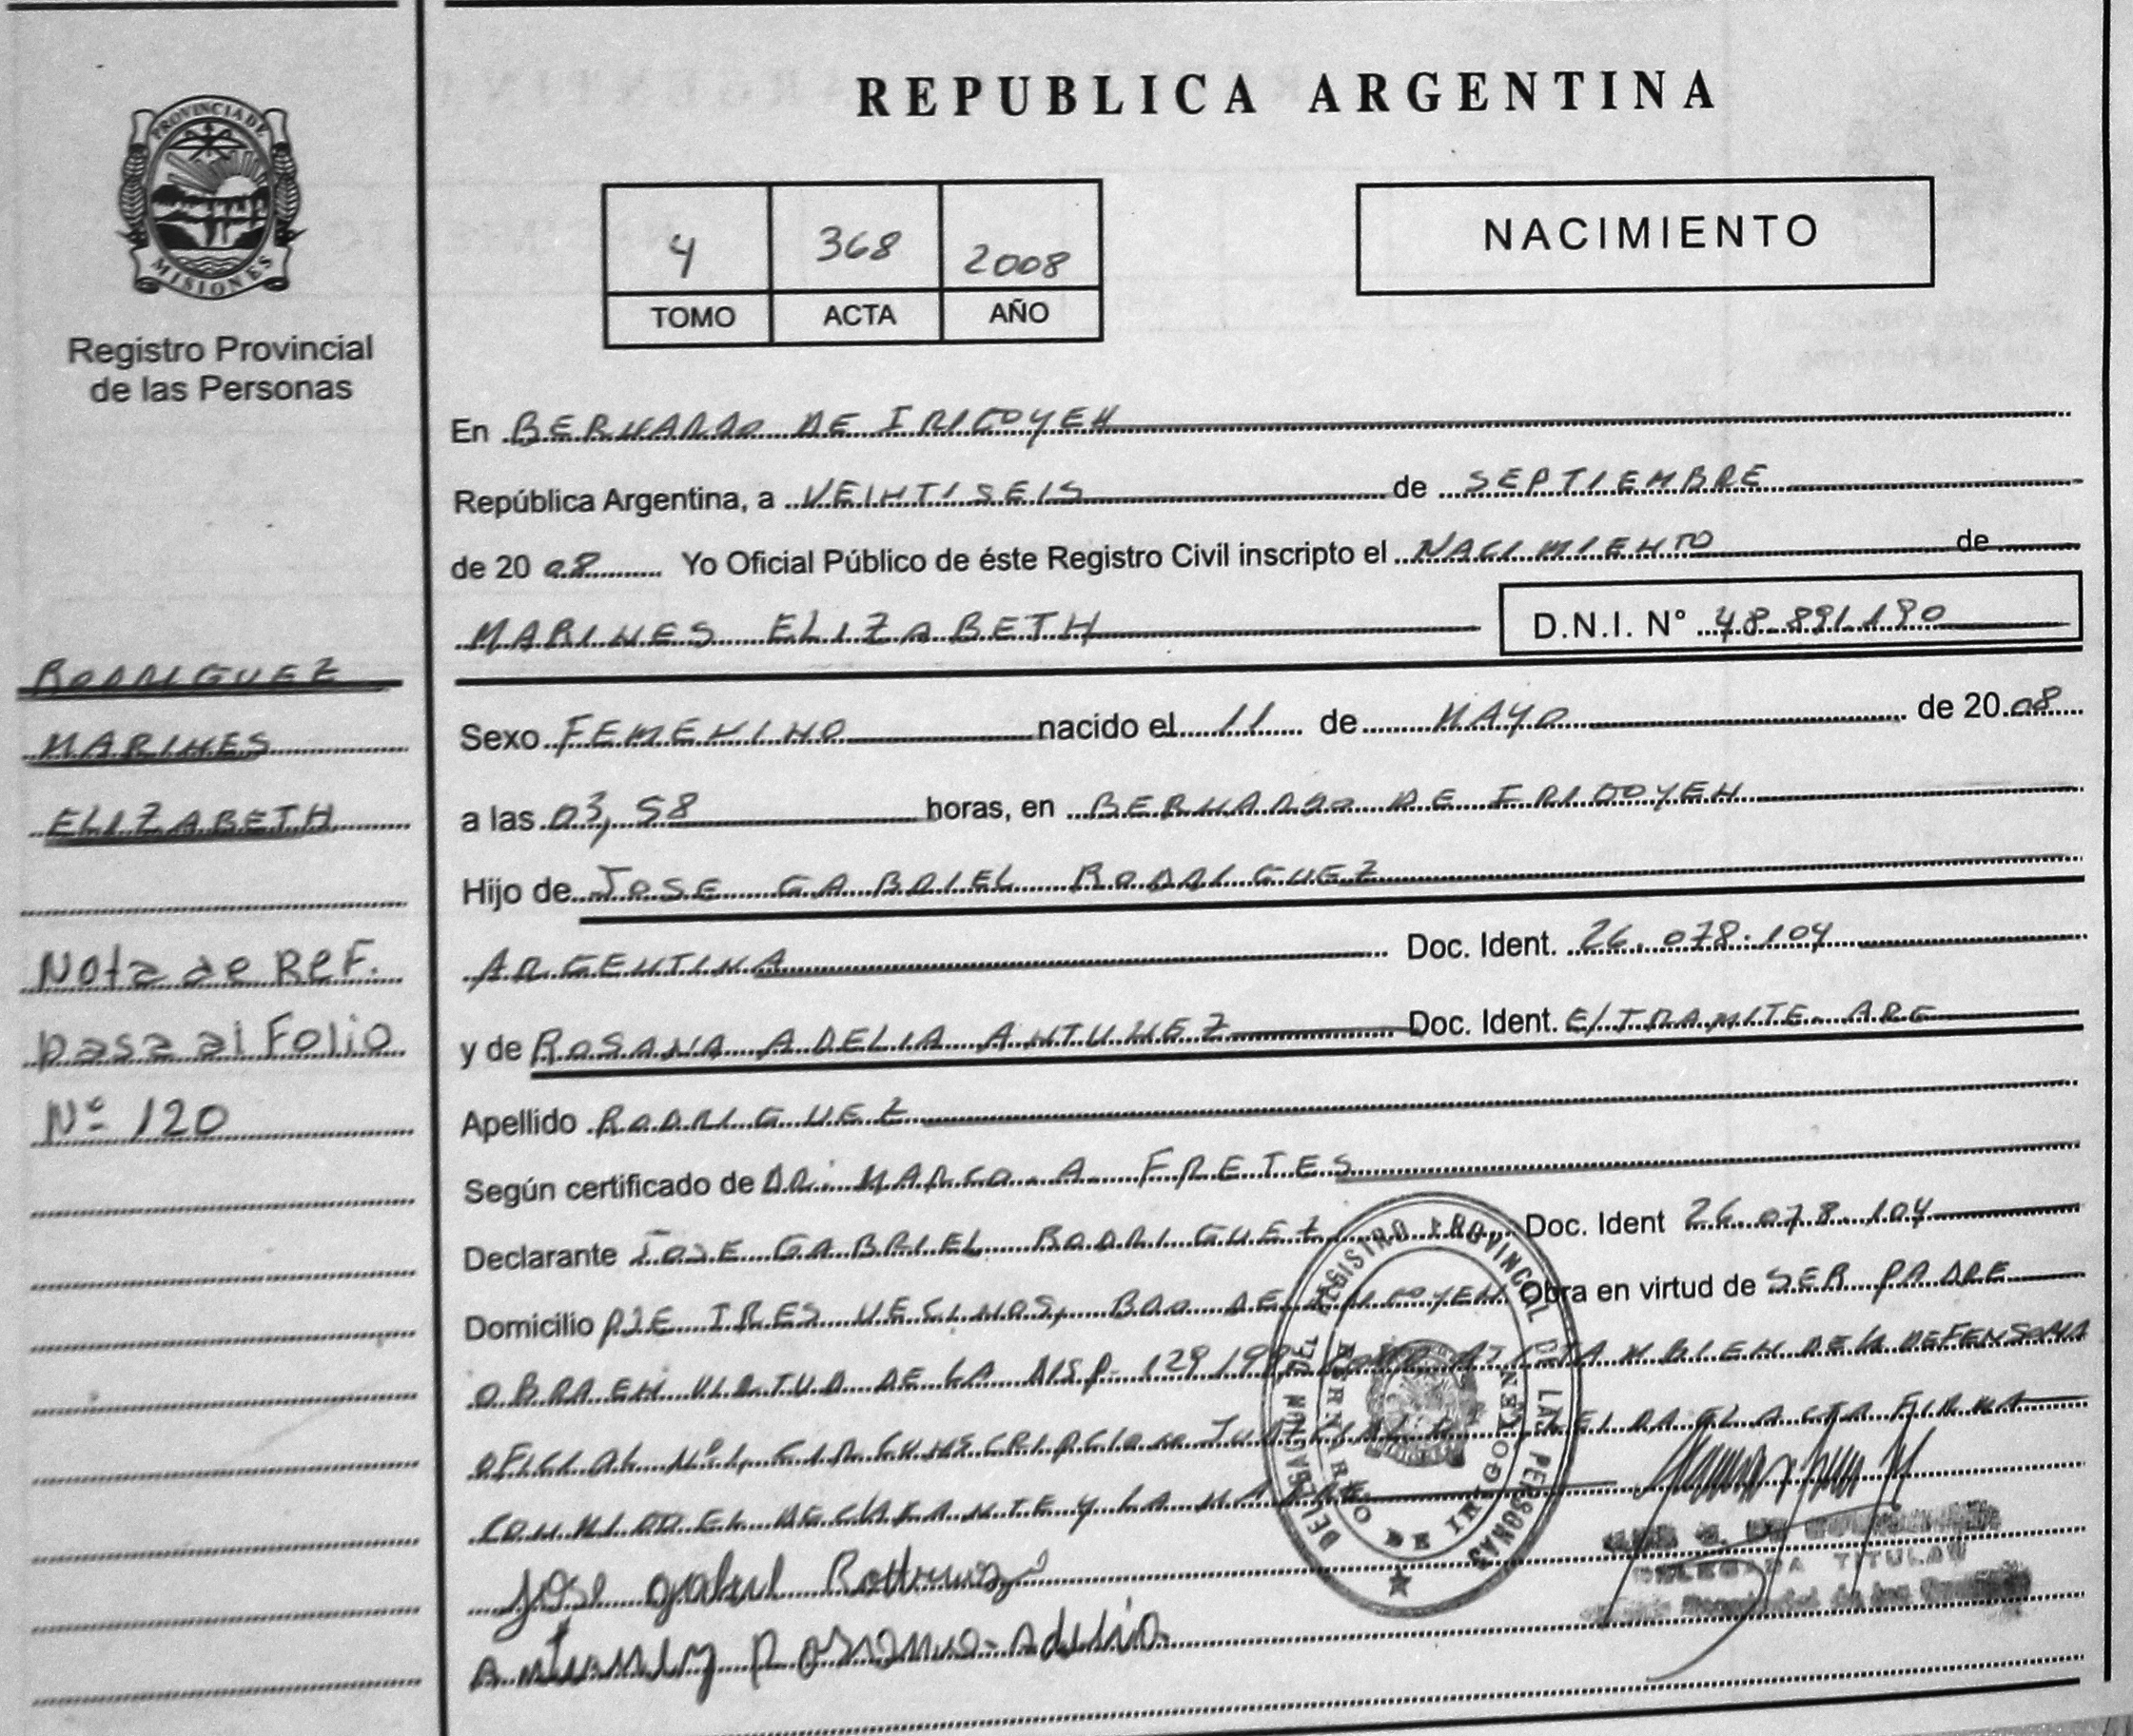 PROVINCIA DE
MISIONES
Registro Provincial
de las Personas
RODRIGUEZ
MARINES
ELIZABETH
Nota de Ref.
pasa al Folio
Nº 120
REPUBLICA ARGENTINA
4 368 2008
TOMO ACTA AÑO
NACIMIENTO
En BERNARDO DE IRIGOYEN
República Argentina, a VEINTISEIS de SEPTIEMBRE
de 2008 Yo Oficial Público de éste Registro Civil inscripto el NACIMIENTO de
MARINES ELIZABETH D.N.I. N° 48.891.190
Sexo FEMENINO nacido el 11 de MAYO de 2008
a las 03,58 horas, en BERNARDO DE IRIGOYEN
Hijo de JOSE GABRIEL RODRIGUEZ
ARGENTINA Doc. Ident. 26.078.104
y de ROSANA ADELIA ANTUNEZ Doc. Ident. E/TRAMITE. ARG
Apellido RODRIGUEZ
Según certificado de DR. MARCO. A. FRETES
Declarante JOSE GABRIEL RODRIGUEZ Doc. Ident 26.078.104
Domicilio PJE TRES VECINOS, BDO DE IRIGOYEN Obra en virtud de SER PADRE
OBRA EN VIRTUD DE LA DISP. 129/99, TAMBIEN DE LA DEFENSORIA
OFICIAL Nº1, CIRCUNSCRIPCION JUDICIAL LEIDA EL ACTA FIRMA
CONMIGO EL DECLARANTE Y LA MADRE
Jose gabriel Rodriguez
Antunez Rosana Adelia
REGISTRO PROVINCIAL DE LAS PERSONAS
DELEGACION DEL
BERNARDO DE IRIGOYEN
DELEGADA TITULAR